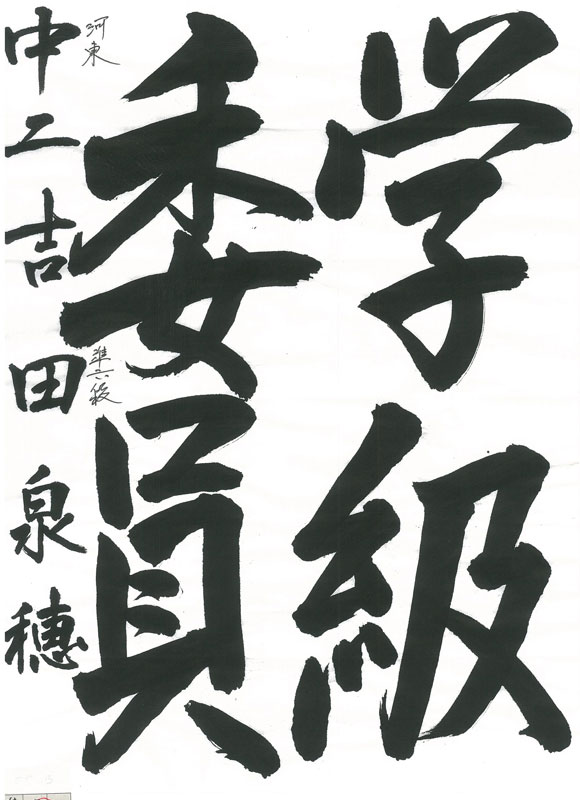 学級
委員
河東
中二 吉田泉穂
準六段